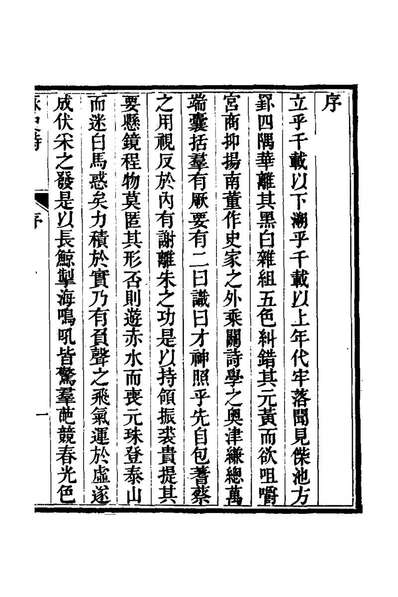 序
立乎千載以下溯乎千載以上年代牢落聞見傑池方
罫四隅華離其黑白雜組五色糾錯其元黃而欲咀嚼
宮商抑揚南董作史家之外乘闢詩學之奧津縑總萬
端囊括羣有厥要有二曰識曰才神照乎先自包蓍蔡
之用視反於內有謝離朱之功是以持領振裘貴提其
要懸鏡程物莫匿其形否則遊赤水而喪元珠登泰山
而迷白馬惑矣力積於實乃有負聲之飛氣運於虛遂
成伏采之發是以長鯨掣海鳴吼皆驚羣葩競春光色
詠史詩
序
一